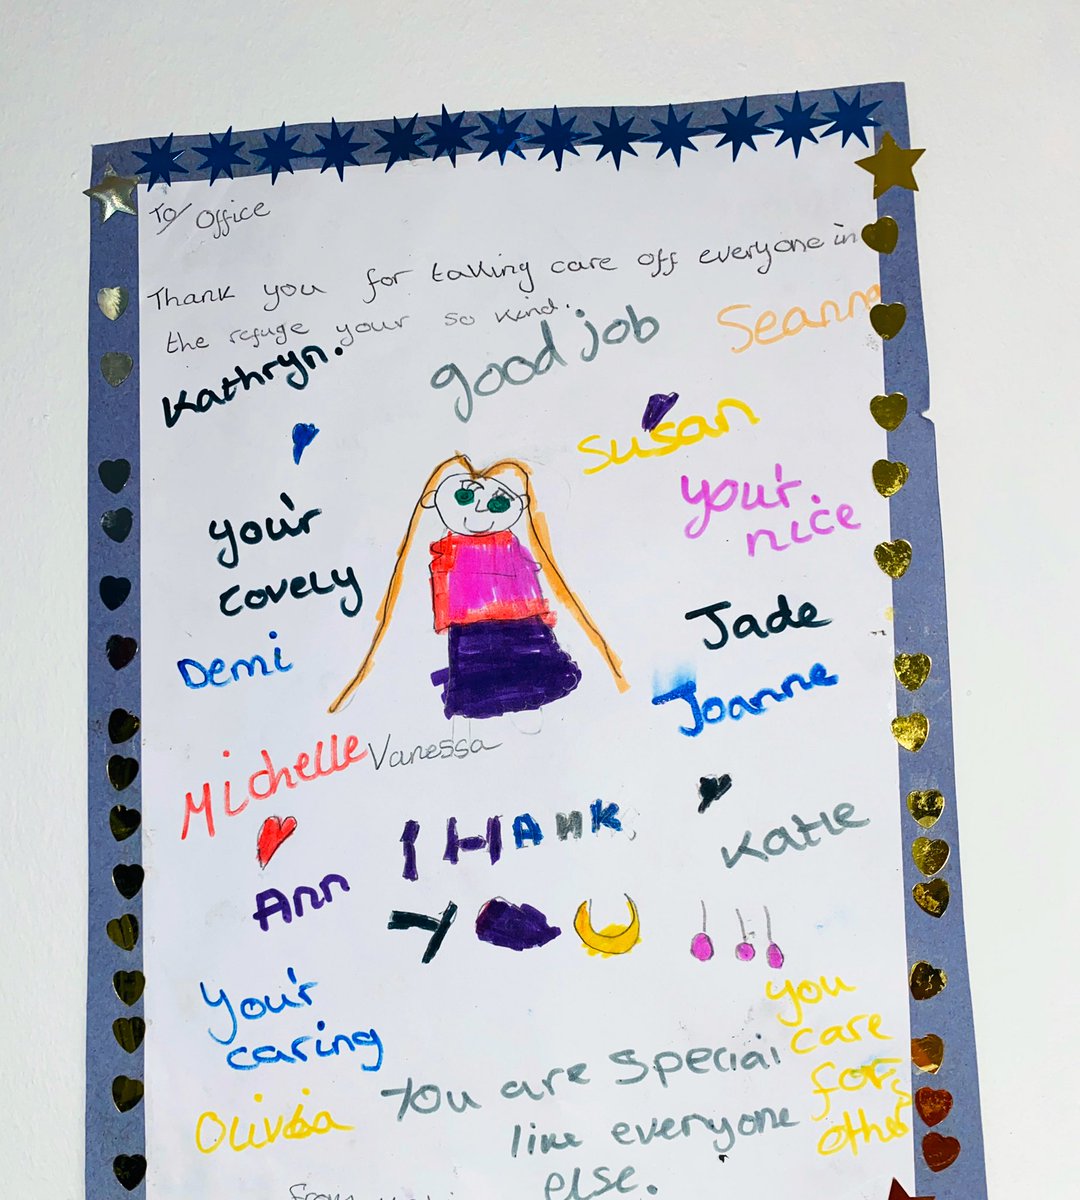 To Office
Thank you for taking care off everyone in
the refuge your so kind.
Kathryn.
good job
Seanna
Susan
you'r
nice
you'r
Lovely
Demi
Jade
Joanne
Michelle
Vanessa
THANK
YOU!!!
Katie
Ann
You'r
caring
you
care
for
other
Olivia
You are Special
like everyone
else.
From